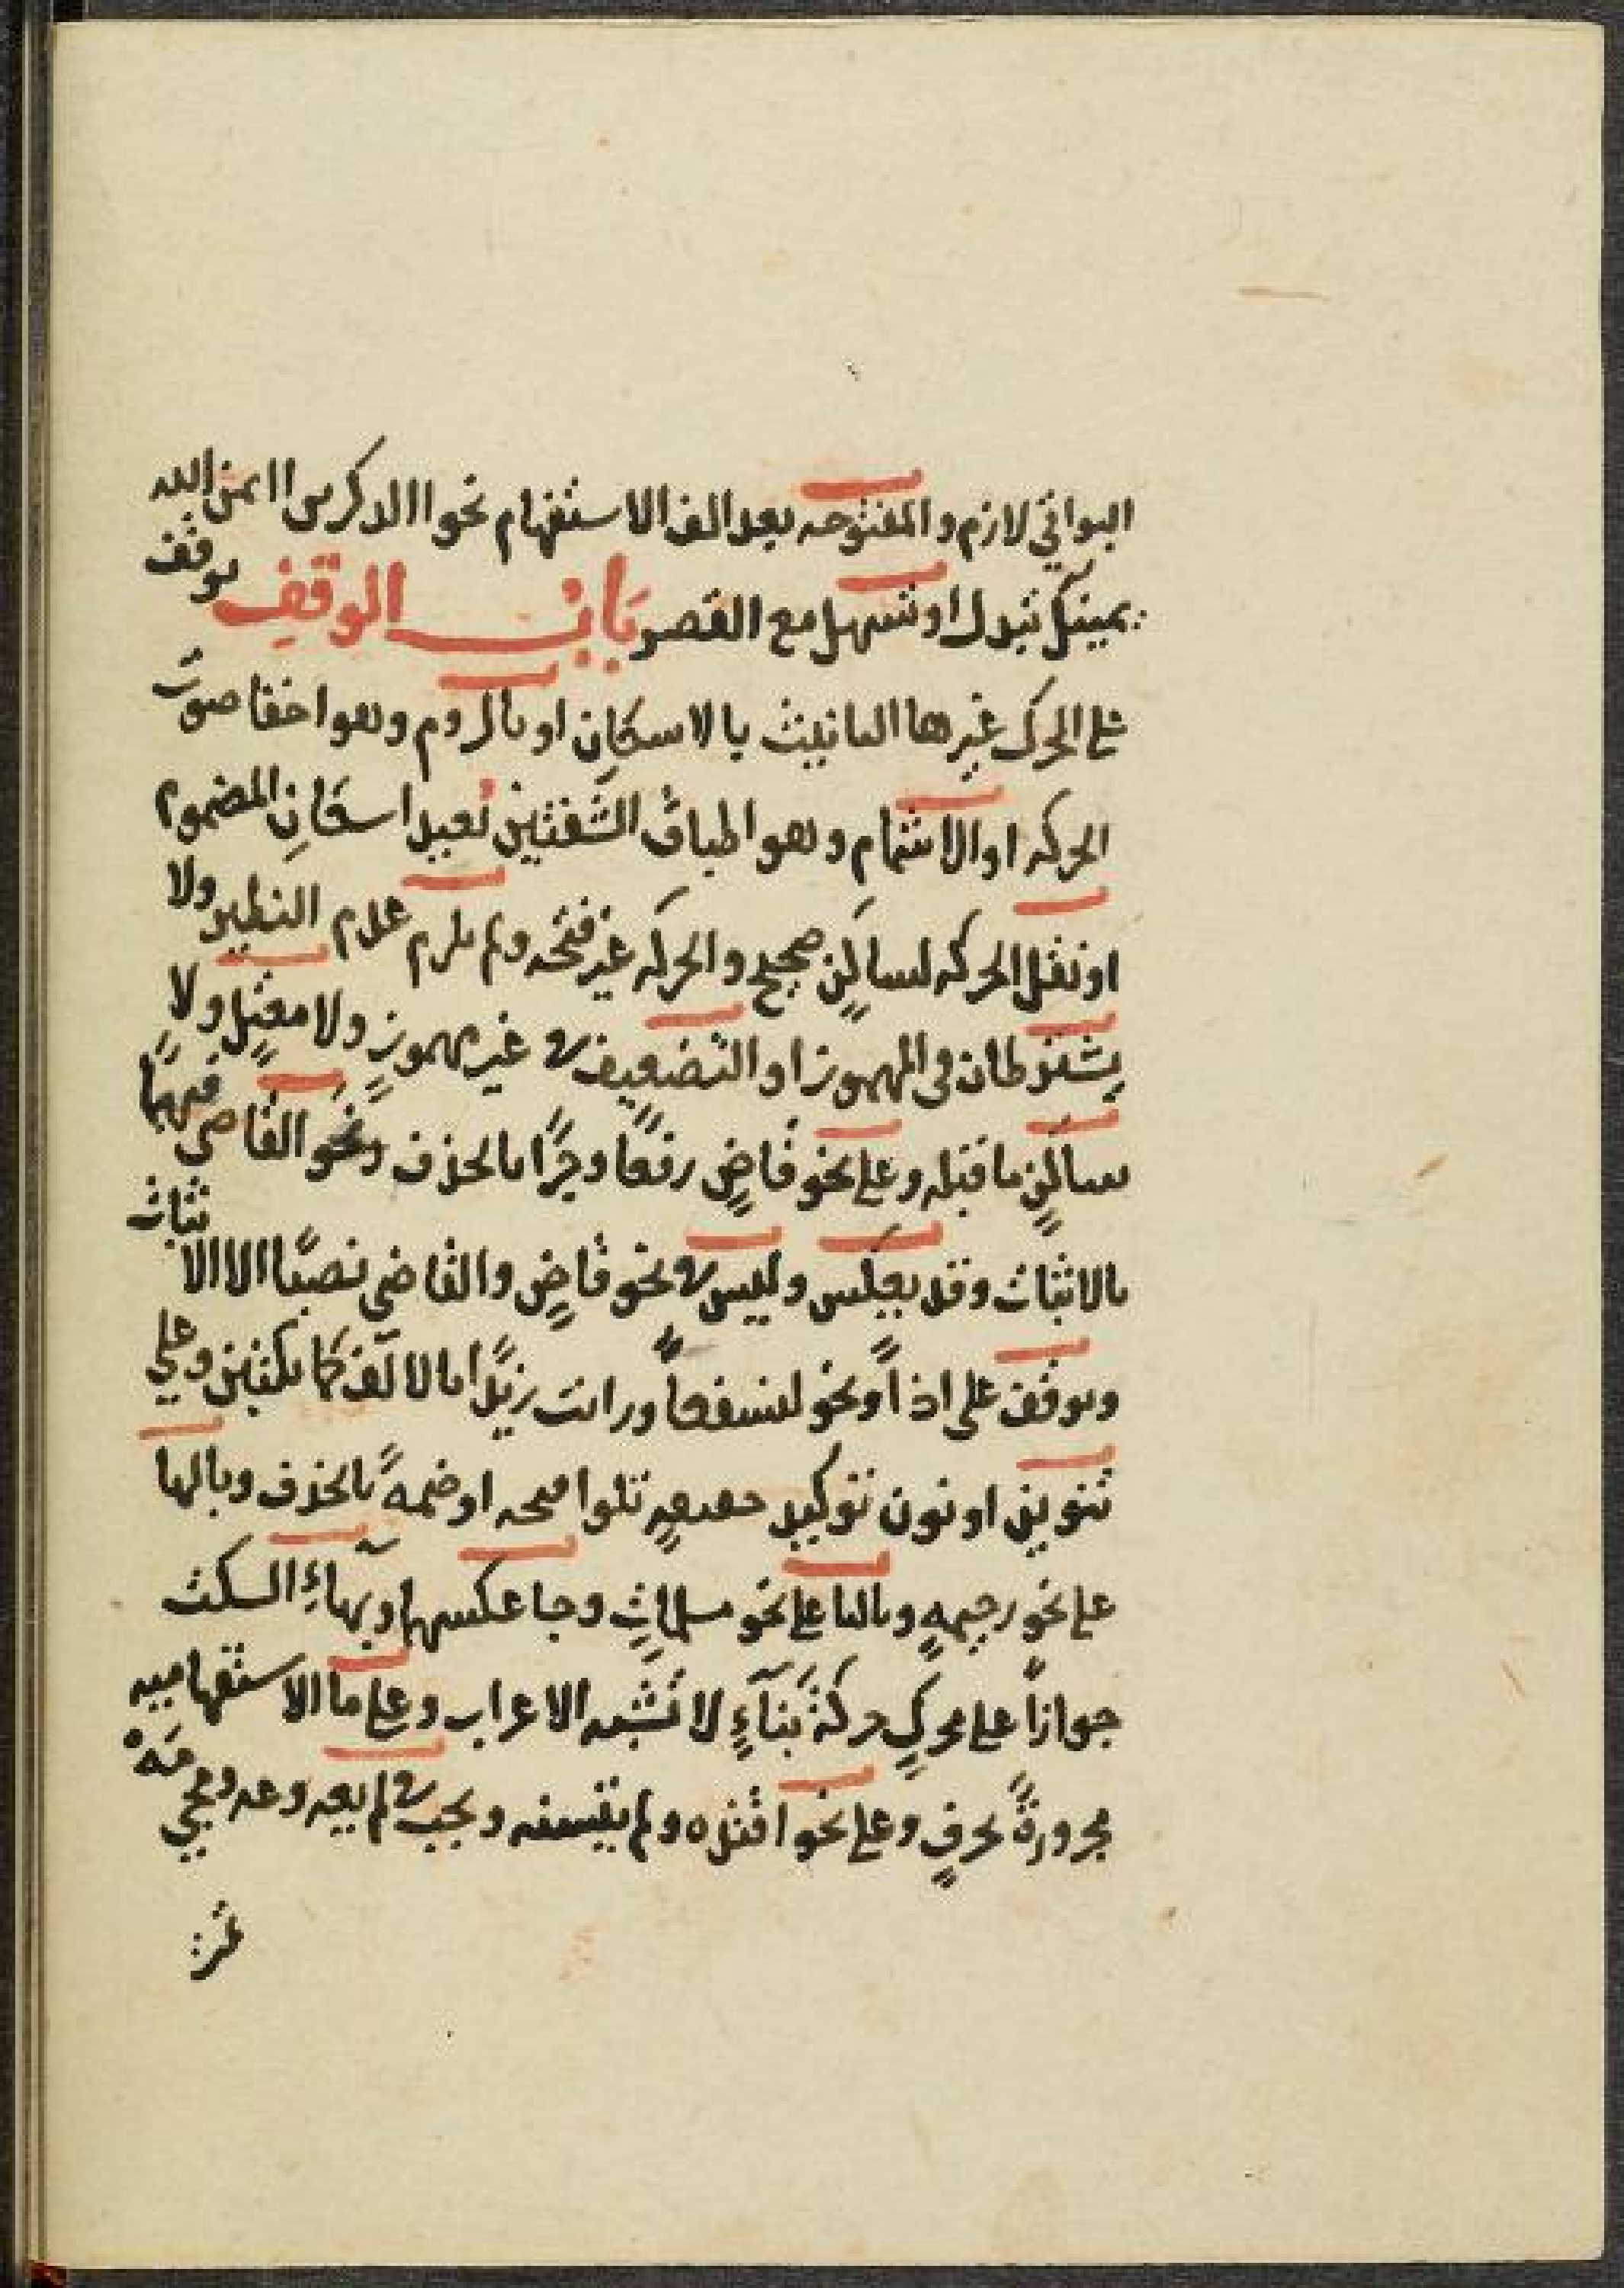 البواقي لازم والمفتوحه بعد الف الاستفهام نحو االذكرين اايمن الله
يمينك تبدل او تسهل مع القصر باب الوقف يوقف
على المحرك غيرها التانيث بالاسكان او بالروم وهو اخفا صوت
الحركه او الاشمام وهو اطباق الشفتين بعيد اسكان المضموم
او نقل الحركه لساكن صحيح والحركه غير فتحه ولم يلزم عدم النظير ولا
يشترطان في المهموز او التضعيف في غير مهموز ولا معتل ولا
ساكن ما قبله وعلى نحو قاض رفعا وجرا بالحذف ونحو القاضي فيهما
بالاثبات وقد يعكس وليس في نحو قاض والقاضي نصبا الا الاثبات
ويوقف على اذا ونحو لنسفعا ورايت زيدا بالالف كما يكتبن وعلى
تنوين او نون توكيد خفيفه تلوا فتحه او ضمة بالحذف وبالها
على نحو رحمه وبالتا على نحو مسلمات وجا عكسهما وبهاء السكت
جوازا على محرك حركة بناء لا تشبه الاعراب وعلى ما الاستفهاميه
مجرورة بحرف وعلى نحو اقتده ولم يتسنه ويجب في لم يعه وعه ومجي مه